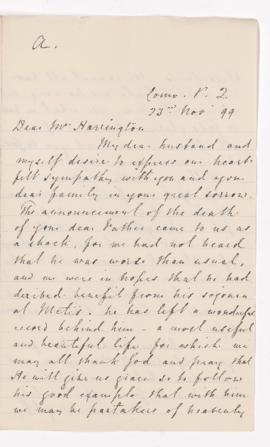 A.
Como. P. 2.
23rd Nov 99
Dear Mr Harrington
My dear husband and
myself desire to express our heart-
felt sympathy with you and your
dear family in your great sorrow.
The announcement of the death
of your dear Father came to us as
a shock, for we had not heard
that he was worse than usual,
and we were in hopes that he had
derived benefit from his sojourn
at Metis. he has left a wonderful
record behind him - a most useful
and beautiful life for which we
may all thank God and pray that
He will give us grace so to follow
his good example that with him
we may be partakers of heavenly